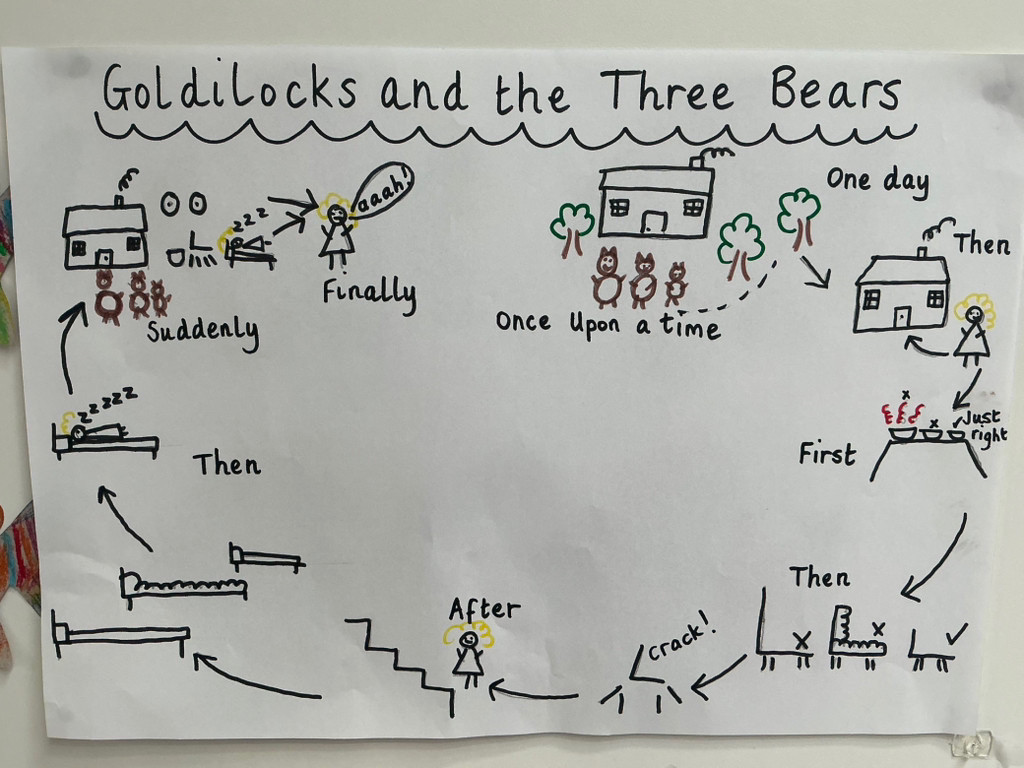 Goldilocks and the Three Bears
One day
Once Upon a time
Then
Just
right
First
Then
crack!
After
Then
zzzzz
Suddenly
zzz
aaah!
Finally